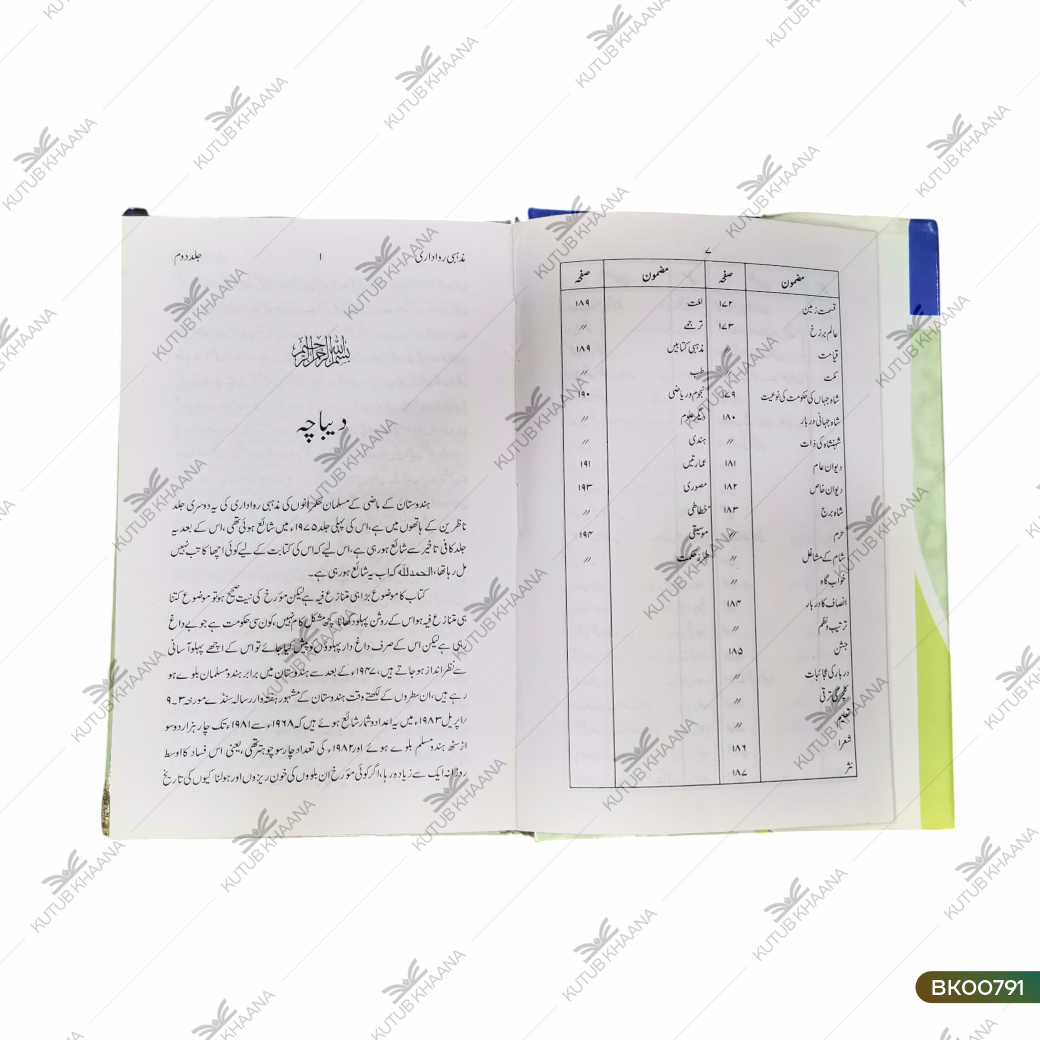 ۷
مضمون صفحہ مضمون صفحہ
قسمت زمین ۱۷۲ لغت ۱۸۹
عالم برزخ ۱۷۳ ترجمے ״
قیامت ״ مذہبی کتابیں ۱۸۹
مکت ״ طب ״
شاہ جہاں کی حکومت کی نوعیت ۱۷۹ نجوم و ریاضی ۱۹۰
شاہ جہانی دربار ۱۸۰ دیگر علوم ״
شہنشاہ کی ذات ״ ہندی ״
دیوان عام ۱۸۱ عمارتیں ۱۹۱
دیوان خاص ۱۸۲ مصوری ۱۹۳
شاہ برج ۱۸۳ خطاطی ״
حرم ״ موسیقی ۱۹۴
شام کے مشاغل ״ طرز حکومت ״
خواب گاہ ״
انصاف کا دربار ۱۸۴
ترتیب و نظم ״
جشن ۱۸۵
دربار کی عجائبات ״
کلچر کی ترقی ״
تعلیم ״
شعرا ۱۸۶
نثر ۱۸۷
مذہبی رواداری ۱ جلد دوم
بسم اللہ الرحمن الرحیم
دیباچہ
ہندوستان کے ماضی کے مسلمان حکمرانوں کی مذہبی رواداری کی یہ دوسری جلد
ناظرین کے ہاتھوں میں ہے، اس کی پہلی جلد ۱۹۷۵ء میں شائع ہوئی تھی، اس کے بعد یہ
جلد کافی تاخیر سے شائع ہو رہی ہے، اس لیے کہ اس کی کتابت کے لیے کوئی اچھا کاتب نہیں
مل رہا تھا، الحمد للہ کہ اب یہ شائع ہو رہی ہے۔
کتاب کا موضوع بڑا ہی متنازع فیہ ہے لیکن مؤرخ کی نیت صحیح ہو تو موضوع کتنا
ہی متنازع فیہ ہو اس کے روشن پہلو دکھانا کچھ مشکل کام نہیں، کون سی حکومت ہے جو بے داغ
رہی ہے لیکن اس کے صرف داغ دار پہلوؤں کو پیش کیا جائے تو اس کے اچھے پہلو آسانی
سے نظر انداز ہو جاتے ہیں، ۱۹۴۷ء کے بعد سے ہندوستان میں برابر ہندو مسلمان بلوے ہو
رہے ہیں، ان سطروں کے لکھتے وقت ہندوستان کے مشہور ہفتہ وار رسالہ سنڈے مورخہ ۳۔۹
اپریل ۱۹۸۳ء میں یہ اعداد و شمار شائع ہوئے ہیں کہ ۱۹۶۸ء سے ۱۹۸۱ء تک چار ہزار دو سو
اڑسٹھ ہندو مسلم بلوے ہوئے اور ۱۹۸۲ء کی تعداد چار سو چوہتر تھی، یعنی اس فساد کا اوسط
روزانہ ایک سے زیادہ رہا، اگر کوئی مؤرخ ان بلووں کی خون ریزوں اور ہولناکیوں کی تاریخ
KUTUB KHAANA
BK00791